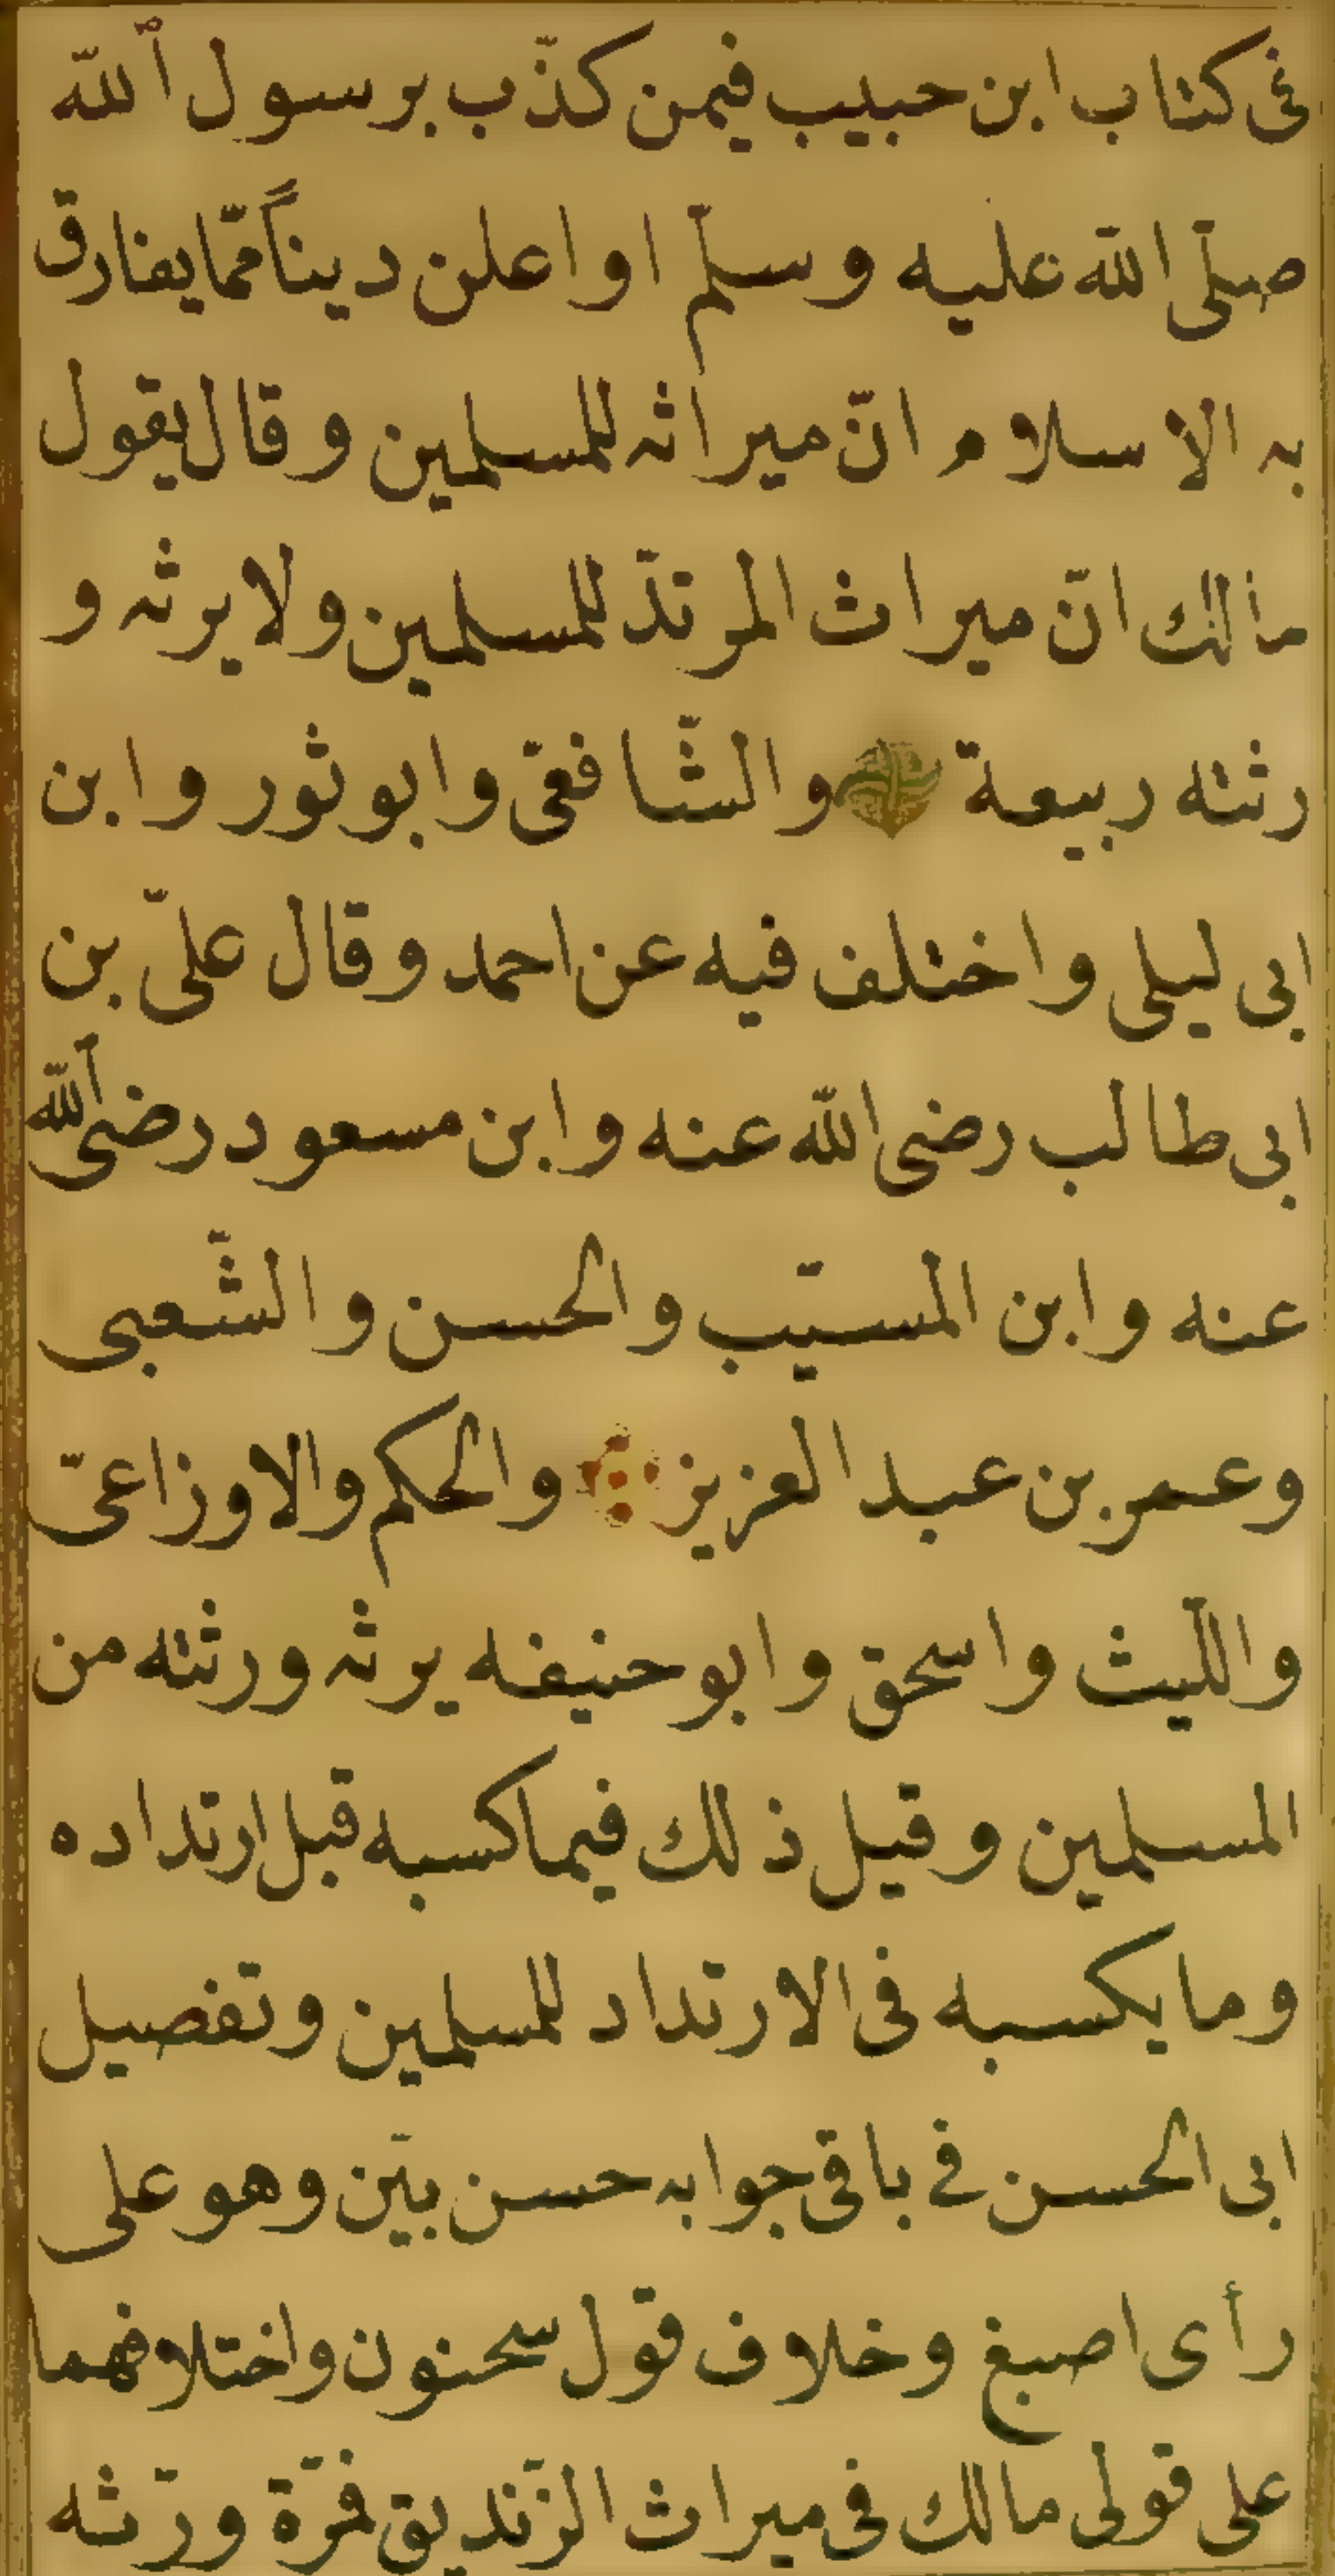 فى كتاب ابن حبيب فيمن كذّب برسول الله
صلّى الله عليه وسلّم او اعلن ديناً ممّا يفارق
به الاسلام انّ ميراثه للمسلمين وقال يقول
مالك انّ ميراث المرتدّ للمسلمين ولا يرثه و
رثته ربيعة والشّافعىّ وابو ثور وابن
ابى ليلى واختلف فيه عن احمد وقال علىّ بن
ابى طالب رضى الله عنه وابن مسعود رضى الله
عنه وابن المسيّب والحسن والشّعبى
وعمر بن عبد العزيز والحكم والاوزاعىّ
واللّيث واسحق وابو حنيفه يرثه ورثته من
المسلمين وقيل ذلك فيما كسبه قبل ارتداده
وما يكسبه فى الارتداد للمسلمين وتفصيل
ابى الحسن فى باقى جوابه حسن بيّن وهو على
رأى اصبغ وخلاف قول سحنون واختلافهما
على قولى مالك فى ميراث الزّنديق فمرّة ورّثه